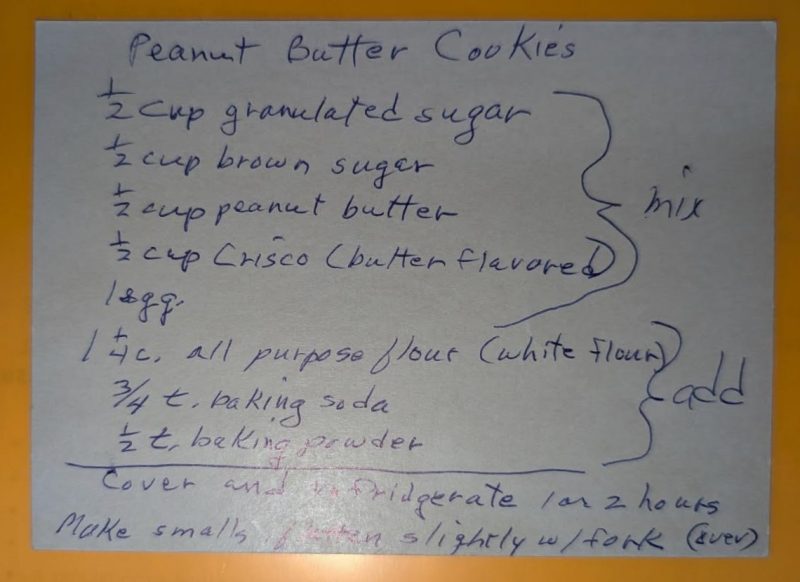 Peanut Butter Cookies
1/2 cup granulated sugar
1/2 cup brown sugar
1/2 cup peanut butter
mix
1/2 cup Crisco (butter flavored)
1 egg.
1 1/4 c. all purpose flour (white flour)
3/4 t. baking soda
add
1/2 t. baking powder
Cover and refridgerate 1 or 2 hours
Make smalls slightly w/fork (over)